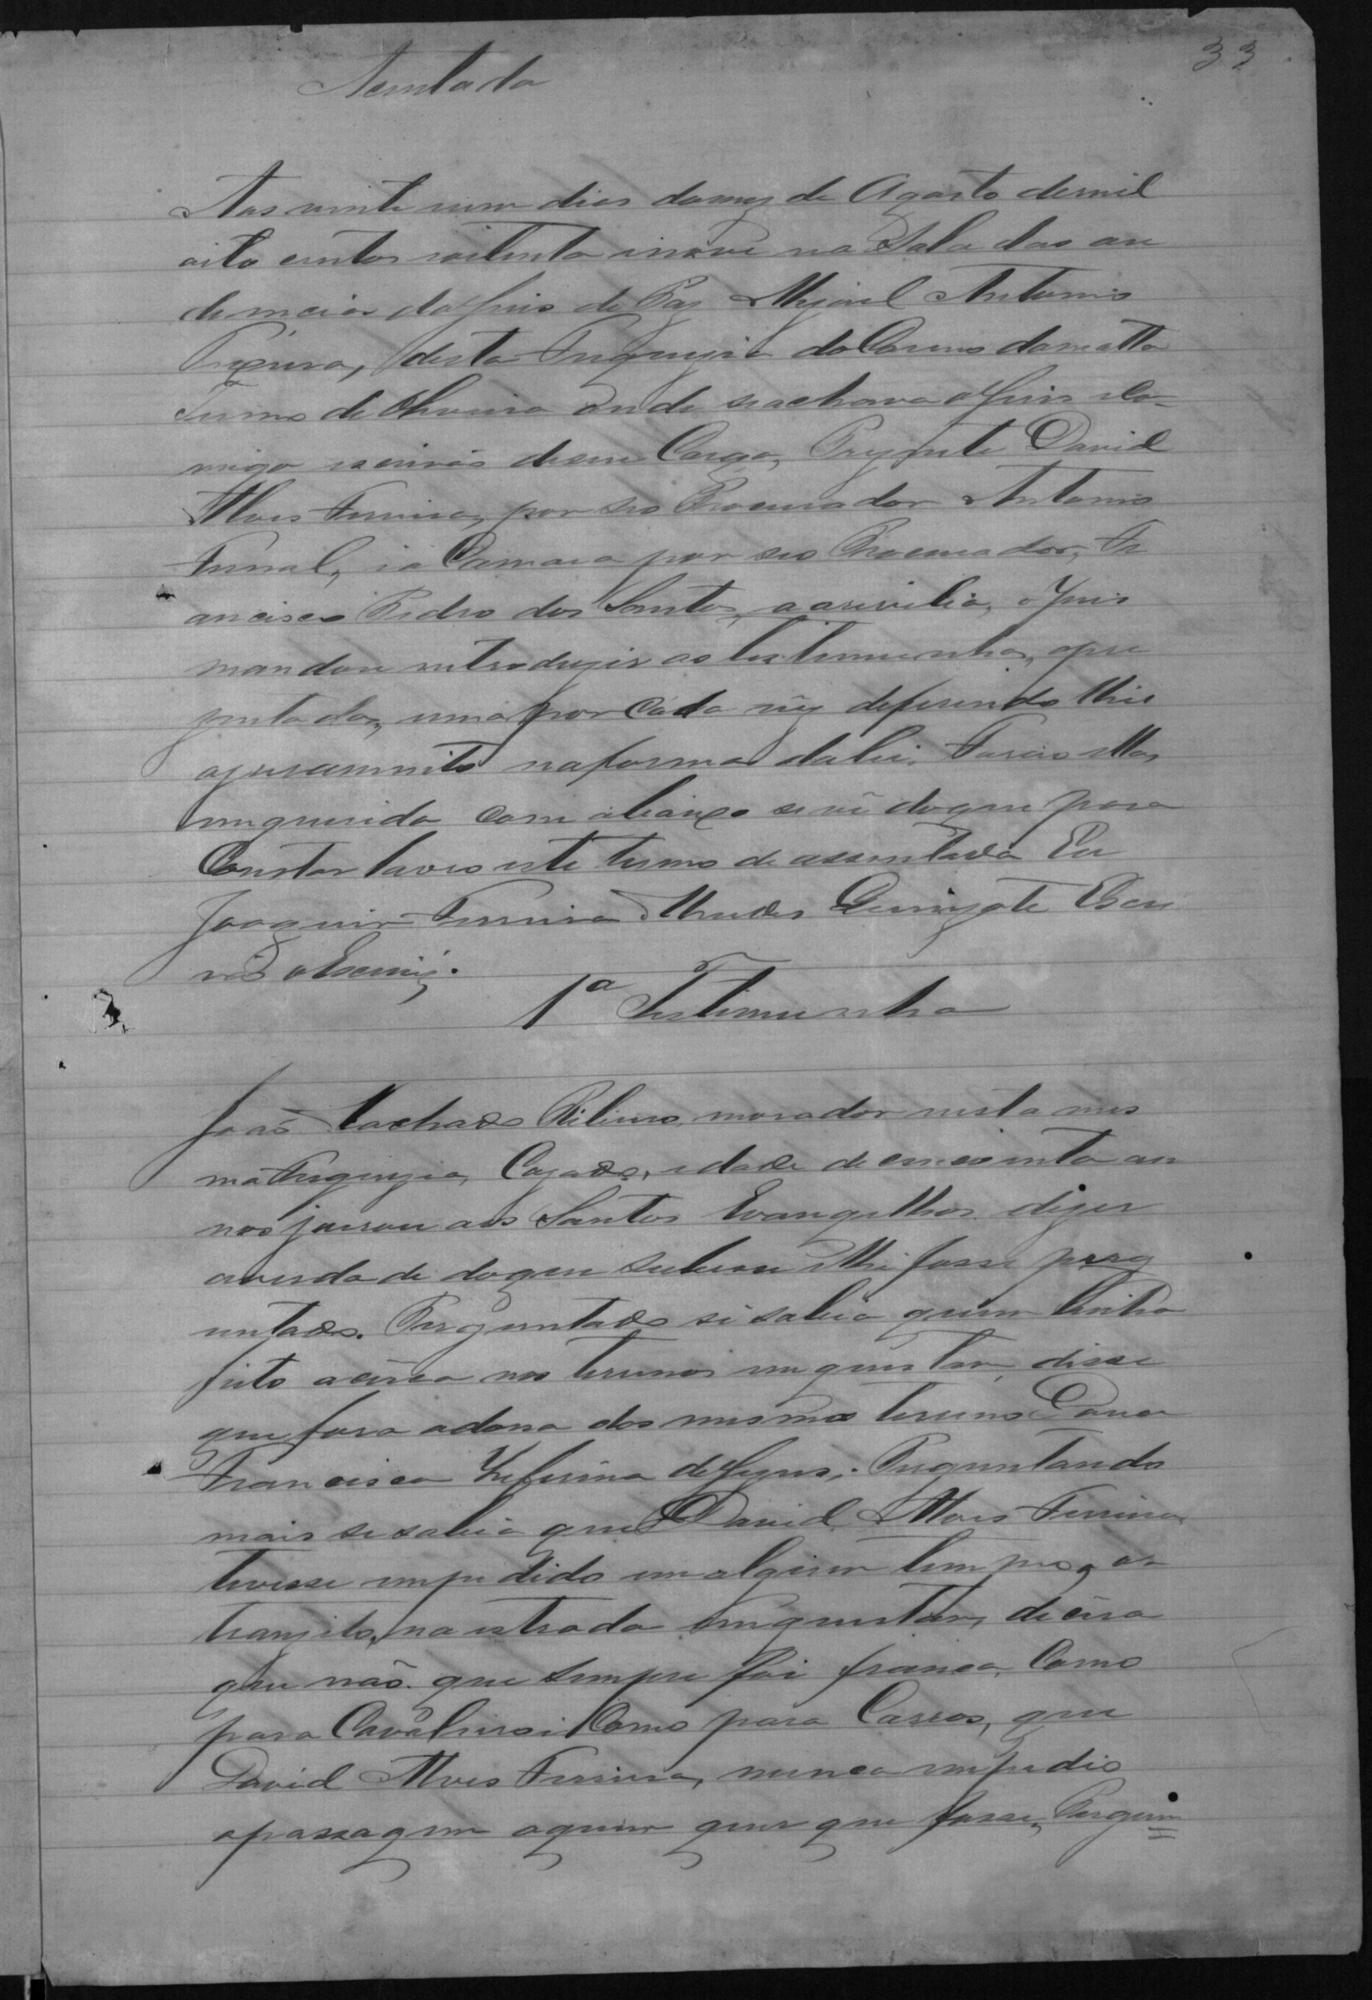 33
Asentada
Aos vinte num dias domez de Agosto demil
oito centos ioitenta inove na Sala das au
diencias doJuis de Paz Miguel Antonio
desta Freguezia do Carmo damatta
Termo de Oliveira onde seachava oJuis Co-
migo escrivão deseu Cargo, Prezente David
Alves Ferreira, por seo Procurador Antonio
ia Camara por seo Procurador, Fr
ancisco Pedro dos Santos, aarevilia, oJuis
mandou introduzir as testemunhas, apre
zentadas, uma por Cada vez deferindo lhes
ojuramento naforma dalei. Farão ellas
inqueridas como abaixo severá doque para
Constar lavro este termo de assentada Eu
Joaquim Ferreira Mendes Escri
vão oEscrevi.
1ª Testemunha
João Machado Ribeiro, morador nesta mes
ma Freguezia, Cazado, idade de cincoenta an
nos jurou aos Santos Evangelhos dizer
averdade doque Subesse elhe fosse perg
untado. Perguntado si sabia quem tinha
feito acêrca nos terrenos emquestão, disse
que fora adona dos mesmos terreno Dona
Francisca Zeferina deJezus,. Perguntando
mais sesabia que David Alves Ferreira
tivesse impedido emalgum tempo, o
tranzito, na estrada emquestão, dicéra
que não que sempre foi franca, Como
para Cavalheiros iComo para Carros, que
David Alves Ferreira, nunca impedio
apassagem aquem quer que fosse, Pergun